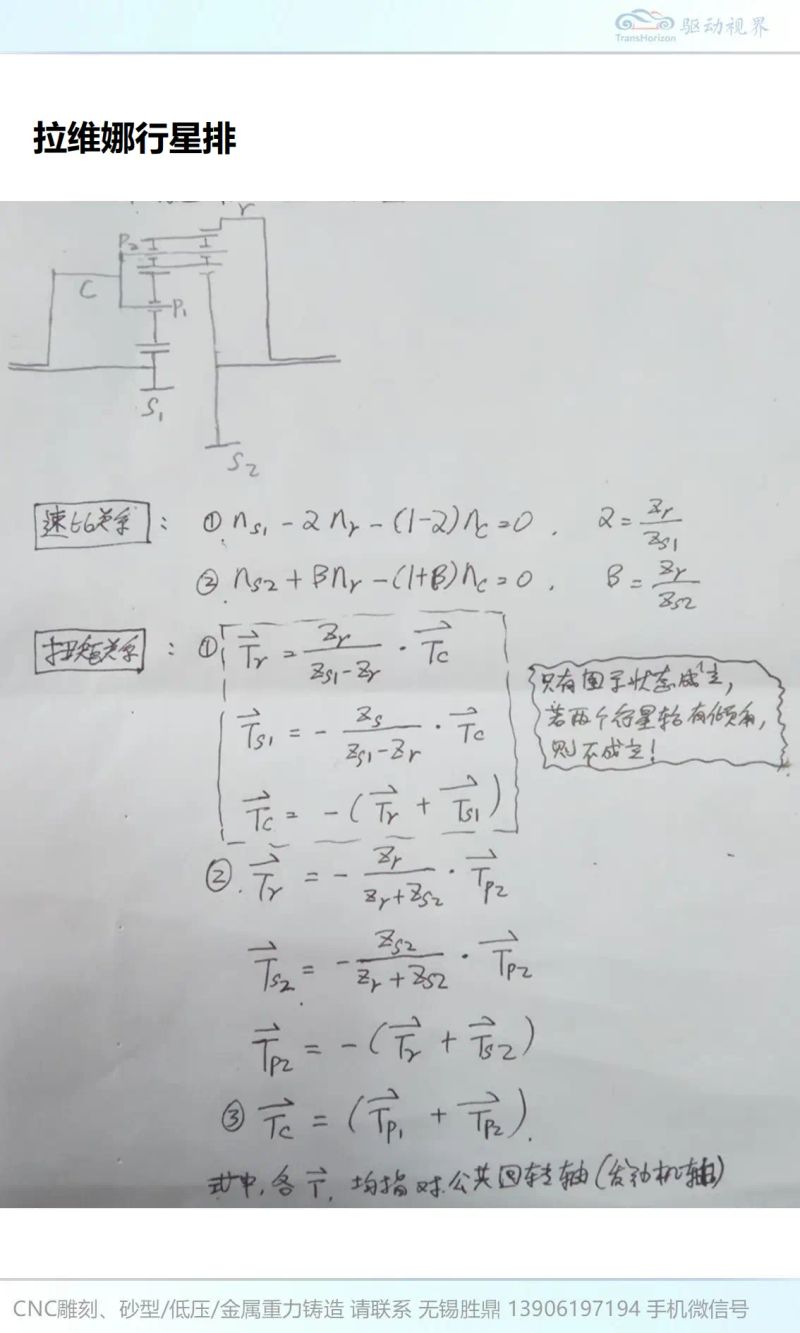 TransHorizon 驱动视界
拉维娜行星排
r
P2
C
P1
S1
S2
速比关系 : ① nS1 - αnr - (1-α)nc = 0 . α = Zr/ZS1
② nS2 + βnr - (1+β)nc = 0 . β = Zr/ZS2
扭矩关系 : ① T⃗r = Zr/(ZS1-Zr) · T⃗c
只有图示状态成立,
若两个行星轮有倾角,
则不成立!
T⃗S1 = - ZS/(ZS1-Zr) · T⃗c
T⃗c = -(T⃗r + T⃗S1)
② T⃗r = - Zr/(Zr+ZS2) · T⃗P2
T⃗S2 = - ZS2/(Zr+ZS2) · T⃗P2
T⃗P2 = -(T⃗r + T⃗S2)
③ T⃗c = (T⃗P1 + T⃗P2).
式中, 各T⃗, 均指对公共回转轴(发动机轴)
CNC雕刻、砂型/低压/金属重力铸造 请联系 无锡胜鼎 13906197194 手机微信号